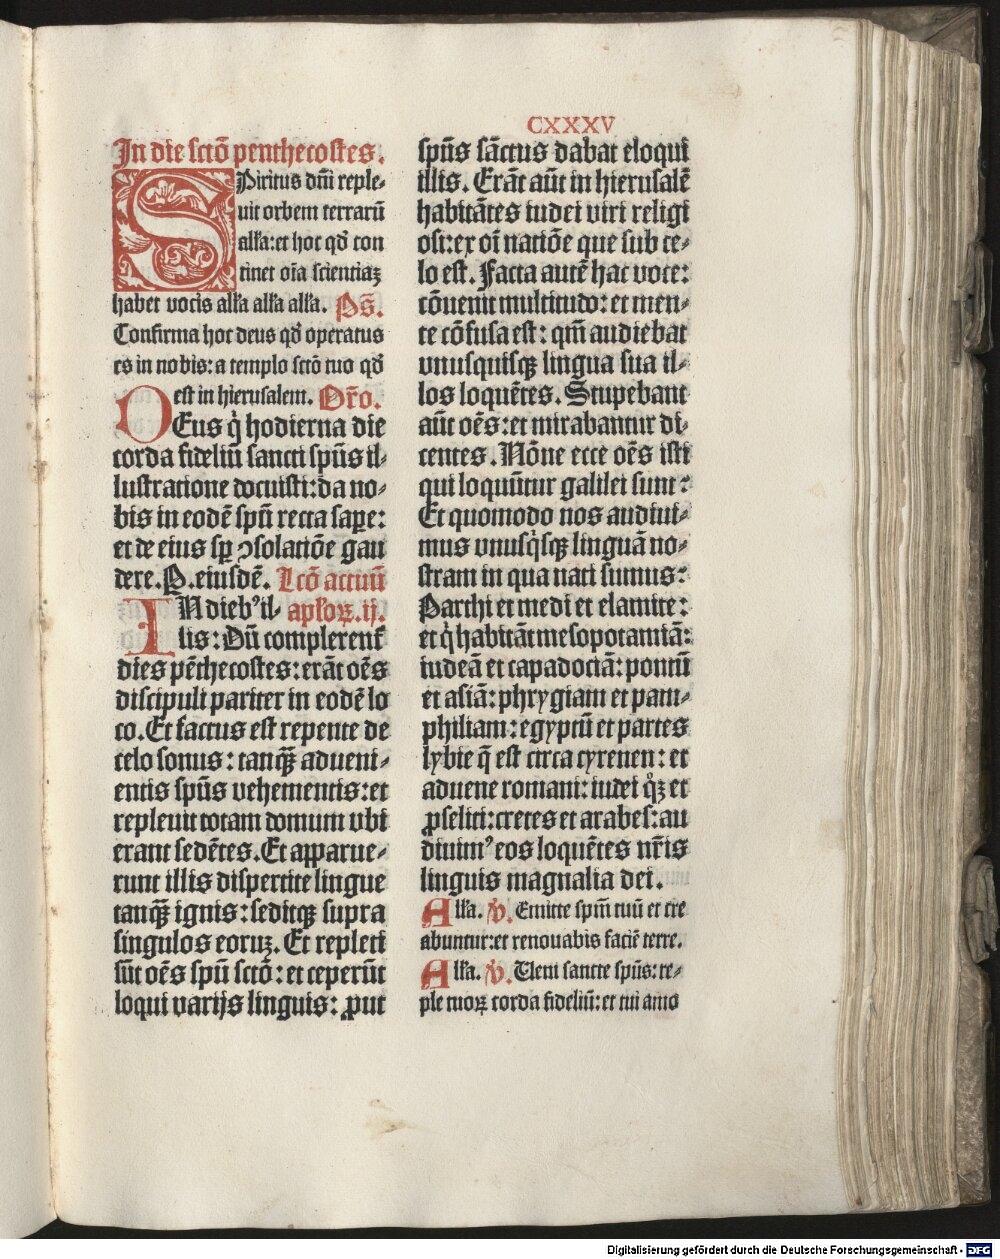 CXXXV
In die sctō penthecostes.
SPiritus dñi reple⸗
uit orbem terrarū
alľa: et hoc qđ con
tinet oīa scientiaꝫ
habet vocis alľa alľa alľa. Ps̄.
Confirma hoc deus qđ operatus
es in nobis: a templo sctō tuo qđ
est in hierusalem. Or̄o.
DEus q̇ hodierna die
corda fideliū sancti spūs il⸗
lustratione docuisti: da no⸗
bis in eodē spū recta saꝑe:
et de eius sꝑ ꝯsolatiōe gau
dere. P. eiusdē. Lcō actuū
IN dieb’ il⸗ apľoꝝ. ij.
lis: Dū complerent᷑
dies pēthecostes: erāt oēs
discipuli pariter in eodē lo
co. Et factus est repente de
celo sonus: tanqȝ adueni⸗
entis spūs vehementis: et
repleuit totam domum vbi
erant sedētes. Et apparue⸗
runt illis dispertite lingue
tanqȝ ignis: seditqȝ supra
singulos eoruꝫ. Et repleti
sūt oēs spū sctō: et ceperūt
loqui varijs linguis: ꝓut
spūs sāctus dabat eloqui
illis. Erāt aūt in hierusalē
habitātes iudei viri religi
osi: ex oī natiōe que sub ce⸗
lo est. Facta autē hac voce:
cōuenit multitudo: et men⸗
te cōfusa est: qm̄ audiebat
vnusquisqȝ lingua sua il⸗
los loquētes. Stupebant
aūt oēs: et mirabantur di⸗
centes. Nōne ecce oēs isti
qui loquūtur galilei sunt?
Et quomodo nos audiui⸗
mus vnusq̇sqȝ linguā no⸗
stram in qua nati sumus?
Parthi et medi et elamite:
et q̇ habitāt mesopotamiā:
iudeā et capadociā: pontū
et asiā: phrygiam et pam⸗
philiam: egyptū et partes
lybie q̄ est circa cyrenen: et
aduene romani: iudei qͦꝫ et
ꝓseliti: cretes et arabes: au
diuim’ eos loquētes nr̄is
linguis magnalia dei.
Alľa. ℣. Emitte spm̄ tuū et cre
abuntur: et renouabis faciē terre.
Alľa. ℣. Ueni sancte spūs: re⸗
ple tuoꝝ corda fideliū: et tui amo
Digitalisierung gefördert durch die Deutsche Forschungsgemeinschaft - DFG